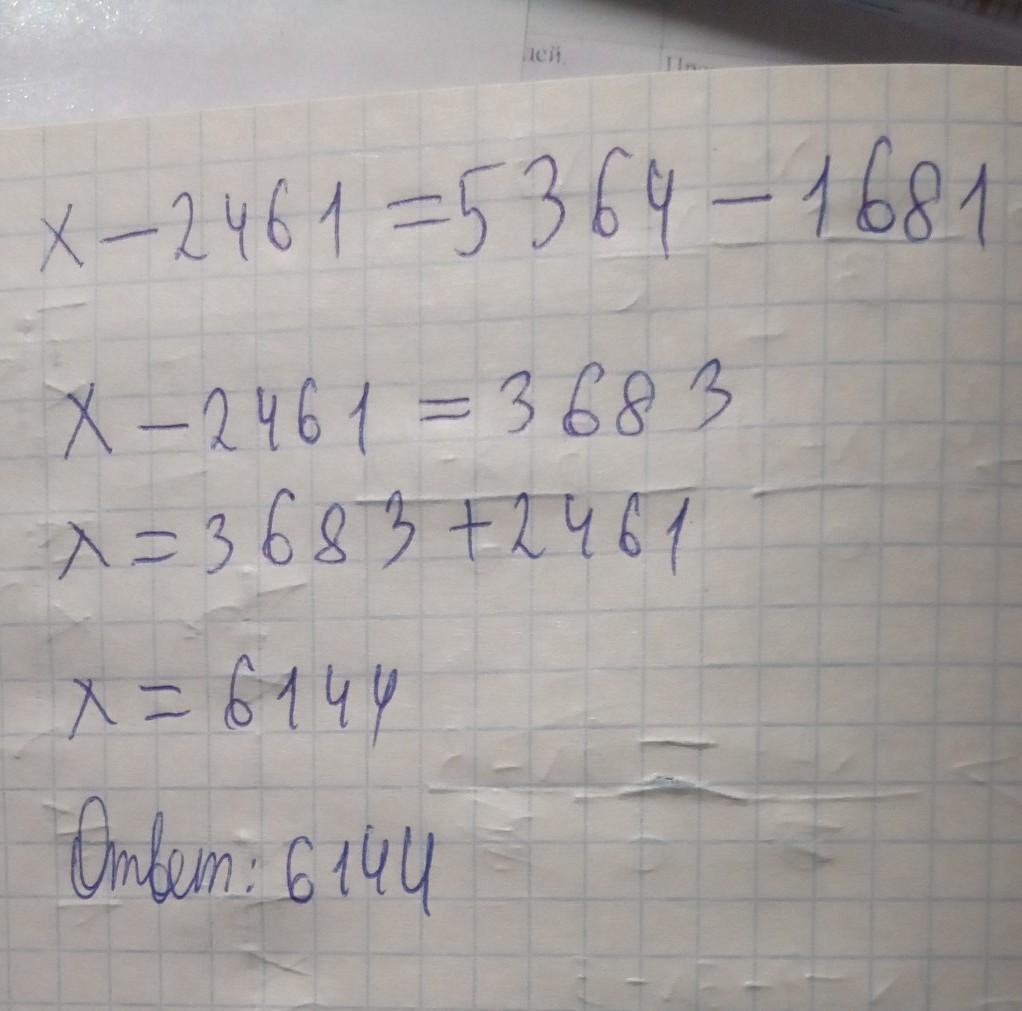 лей.
x - 2461 = 5364 - 1681
x - 2461 = 3683
x = 3683 + 2461
x = 6144
Ответ: 6144